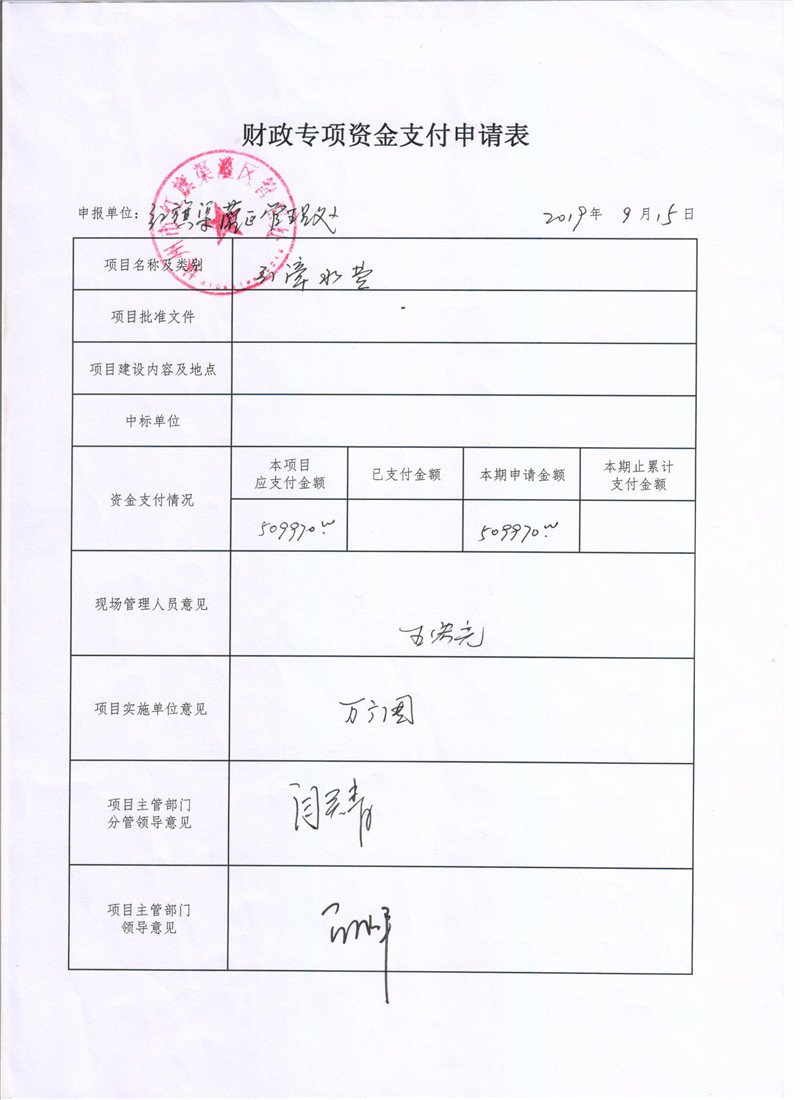 财政专项资金支付申请表
申报单位：红旗渠灌区管理处 2019年 9月15日
项目名称及类别 引漳水费
项目批准文件
项目建设内容及地点
中标单位
资金支付情况
本项目
应支付金额
已支付金额
本期申请金额
本期止累计
支付金额
509970.00
509970.00
现场管理人员意见
项目实施单位意见
万方国
项目主管部门
分管领导意见
项目主管部门
领导意见